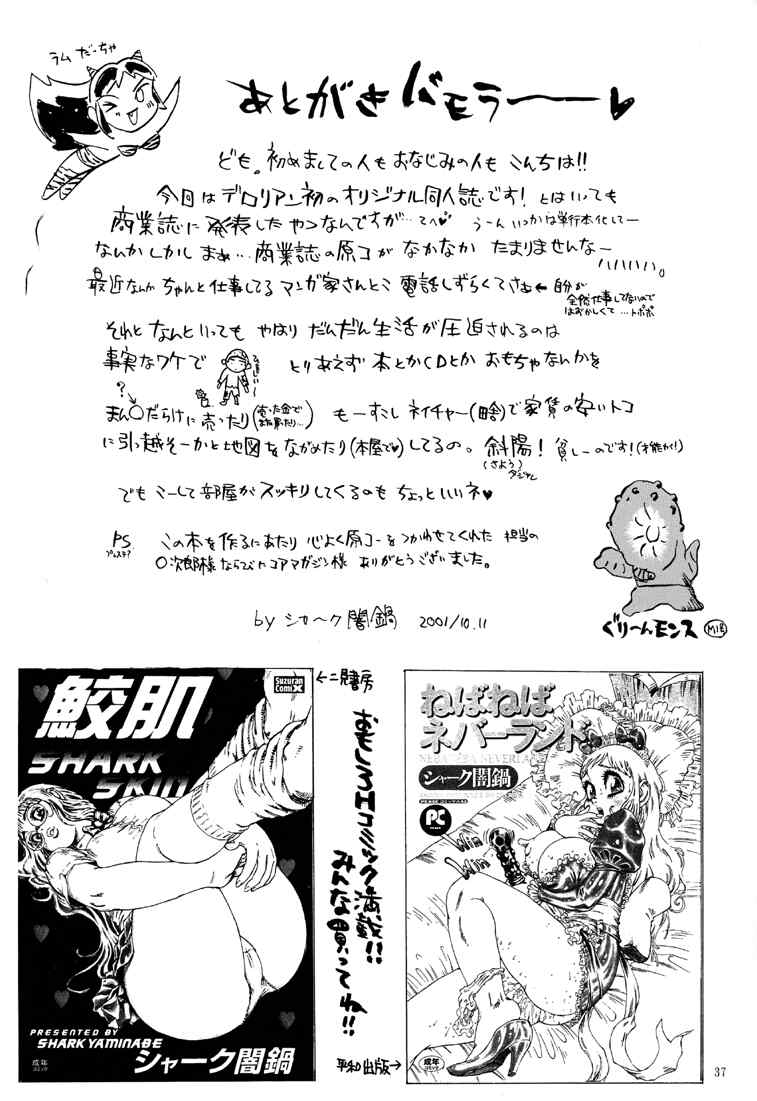 ラムだっちゃ
あとがきバモラーーー♥
ども。初めましての人もおなじみの人もこんちは!!
今回はデロリアン初のオリジナル同人誌です! とはいっても
商業誌に発表したやつなんですが…てへ♥ うーんいつかは単行本化してー
なんかしかしまぁ…商業誌の原コがなかなかたまりませんなー
最近なんかちゃんと仕事してるマンガ家さんとこ電話しずらくてさぁ←自分が
全然仕事してないので
はずかしくて…トホホ
それとなんといってもやはりだんだん生活が圧迫されるのは
事実なワケで とりあえず本とかCDとかおもちゃなんかを
?
まん○だらけに売ったり(売った金で
また買ったり…)
もーすこしネイチャー(暗)で家賃の安いトコ
に引っ越そーかと地図をながめたり(本屋で♥)してるの。斜陽!貧しーのです!(才能が!)
(さよう)
でもこーして部屋がスッキリしてくるのもちょっといいネ♥
PS この本を作るにあたり心よく原コーをつかわせてくれた担当の
プレステ?
○次郎様ならびにコアマガジン様ありがとうございました。
by シャーク闇鍋 2001/10.11
ぐりーんモンス
鮫肌
SHARK
SKIN
Suzuran
ComiX
←二見書房
PRESENTED BY
SHARK YAMINABE
シャーク闇鍋
成年
コミック
おもしろHコミック満載!!
みんな買ってね!!
ねばねば
ネバーランド
シャーク闇鍋
PC
Win
Win
成年
コミック
平和出版→
37